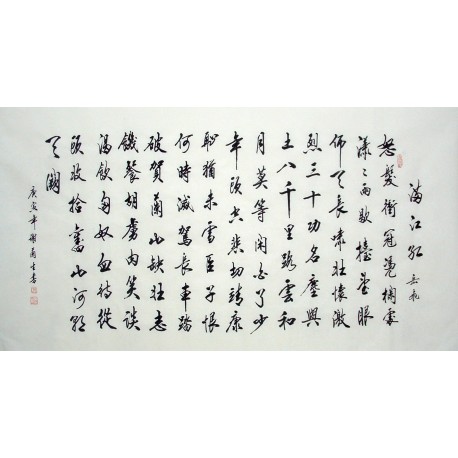 滿江紅 岳飛
怒髮衝冠憑欄處
瀟〻雨歇擡望眼
仰天長嘯壯懷激
烈三十功名塵與
土八千里路雲和
月莫等閑白了少
年頭空悲切靖康
恥猶未雪臣子恨
何時滅駕長車踏
破賀蘭山缺壯志
饑餐胡虜肉笑談
渴飲匈奴血待從
頭收拾舊山河朝
天闕
庚寅年